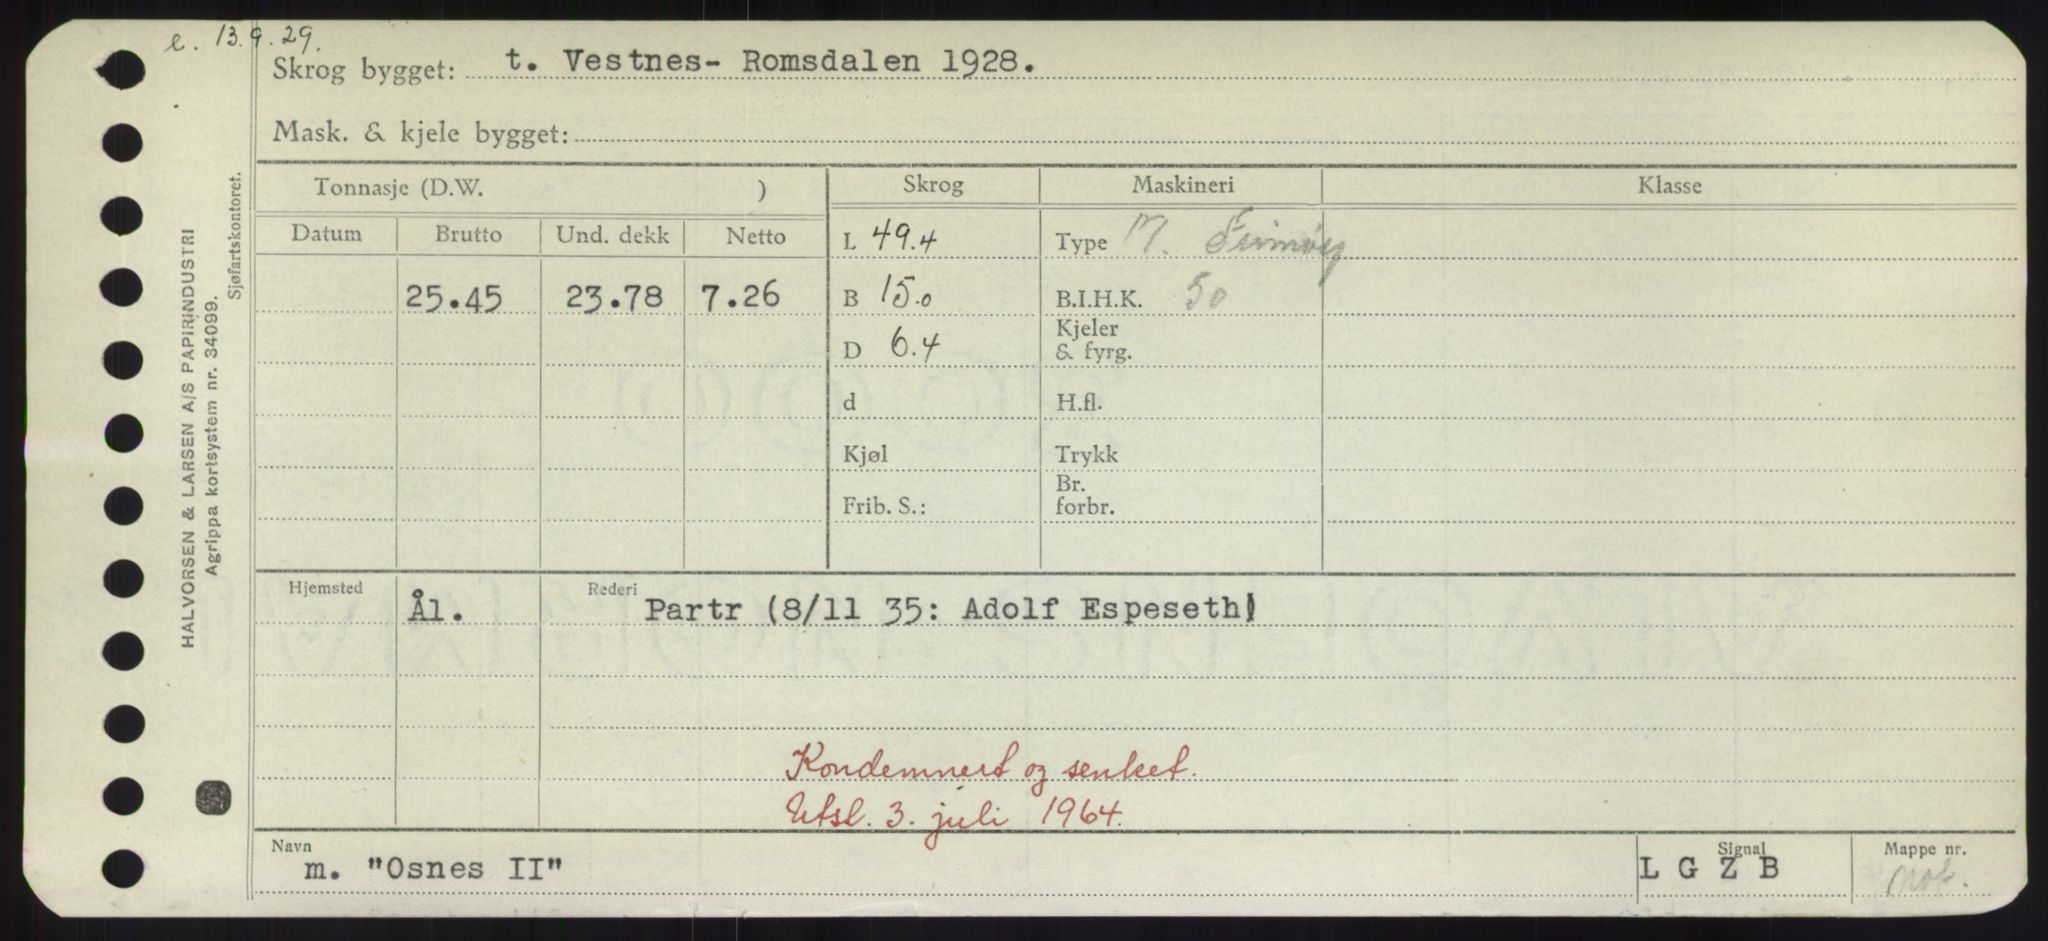 e. 13.9.29.
Skrog bygget: t. Vestnes- Romsdalen 1928.
Mask. & kjele bygget:
Tonnasje (D.W. ) Skrog Maskineri Klasse
Datum Brutto Und. dekk Netto L 49.4 Type M.
25.45 23.78 7.26 B 15.0 B.I.H.K. 50
D 6.4 Kjeler & fyrg.
d H.fl.
Kjøl Trykk
Frib. S.: Br. forbr.
Hjemsted Ål. Rederi Partr (8/11 35: Adolf Espeseth)
Kondemnert og senket.
Utsl. 3. juli 1964.
Navn m. "Osnes II" Signal L G Z B Mappe nr. Not.
HALVORSEN & LARSEN A/S PAPIRINDUSTRI
Agrippa kortsystem nr. 34099.
Sjøfartskontoret.